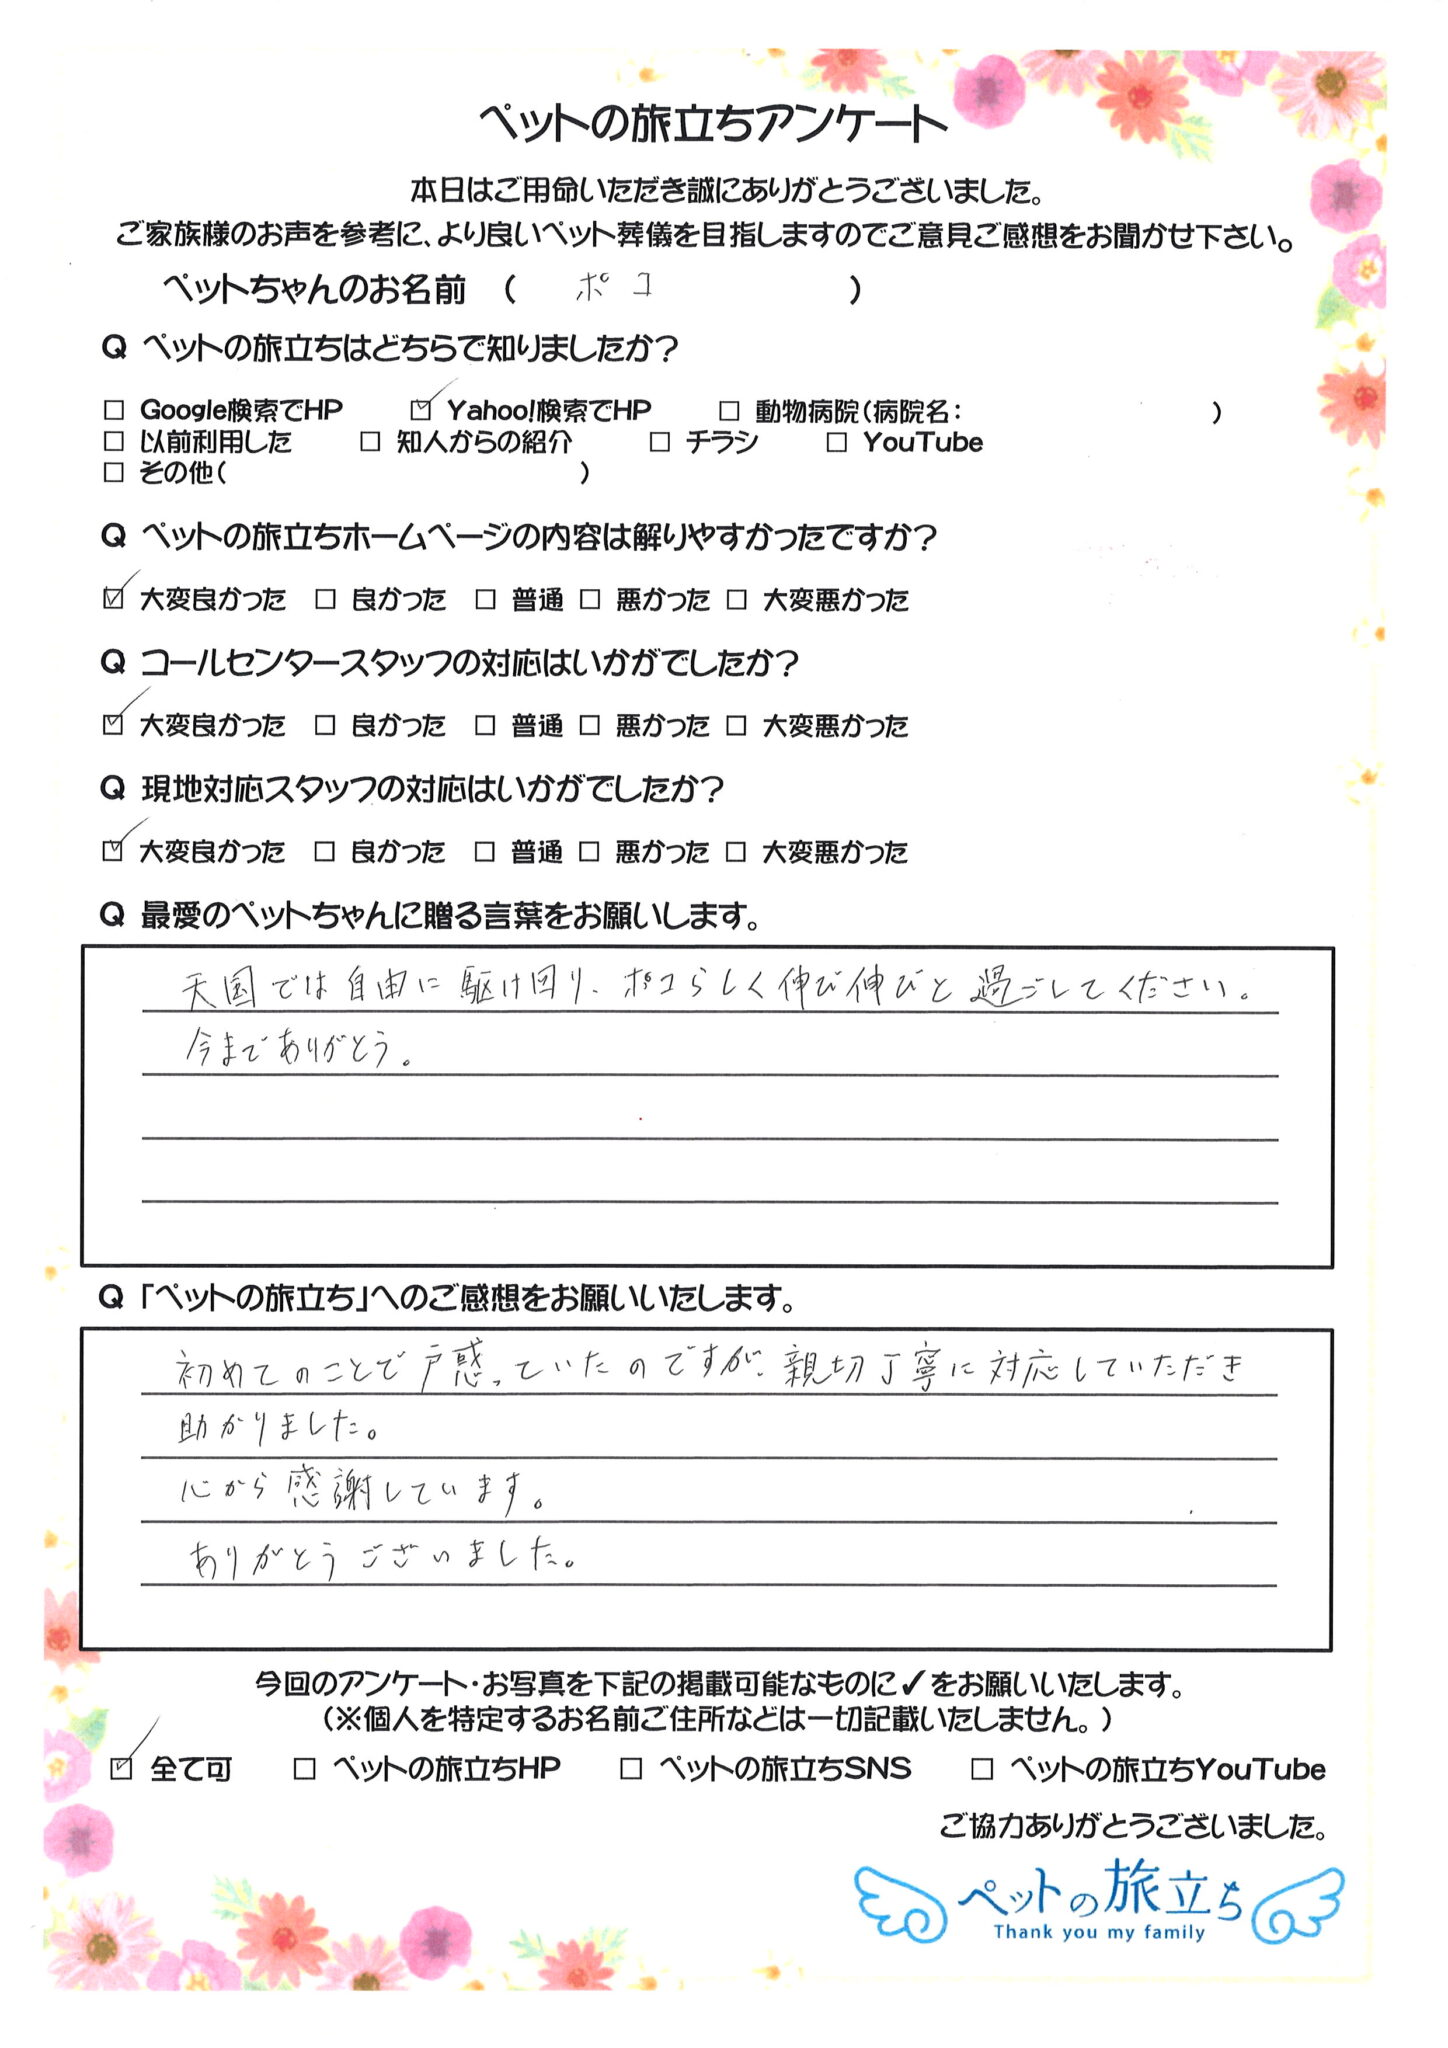 ペットの旅立ちアンケート
本日はご用命いただき誠にありがとうございました。
ご家族様のお声を参考に、より良いペット葬儀を目指しますのでご意見ご感想をお聞かせ下さい。
ペットちゃんのお名前 ( ポコ )
Q ペットの旅立ちはどちらで知りましたか?
□ Google検索でHP ☑ Yahoo!検索でHP □ 動物病院(病院名: )
□ 以前利用した □ 知人からの紹介 □ チラシ □ YouTube
□ その他( )
Q ペットの旅立ちホームページの内容は解りやすかったですか?
☑ 大変良かった □ 良かった □ 普通 □ 悪かった □ 大変悪かった
Q コールセンタースタッフの対応はいかがでしたか?
☑ 大変良かった □ 良かった □ 普通 □ 悪かった □ 大変悪かった
Q 現地対応スタッフの対応はいかがでしたか?
☑ 大変良かった □ 良かった □ 普通 □ 悪かった □ 大変悪かった
Q 最愛のペットちゃんに贈る言葉をお願いします。
天国では自由に駆け回り、ポコらしく伸び伸びと過ごしてください。
今までありがとう。
Q 「ペットの旅立ち」へのご感想をお願いいたします。
初めてのことで戸惑っていたのですが、親切丁寧に対応していただき
助かりました。
心から感謝しています。
ありがとうございました。
今回のアンケート・お写真を下記の掲載可能なものに✓をお願いいたします。
(※個人を特定するお名前ご住所などは一切記載いたしません。)
☑ 全て可 □ ペットの旅立ちHP □ ペットの旅立ちSNS □ ペットの旅立ちYouTube
ご協力ありがとうございました。
ペットの旅立ち
Thank you my family